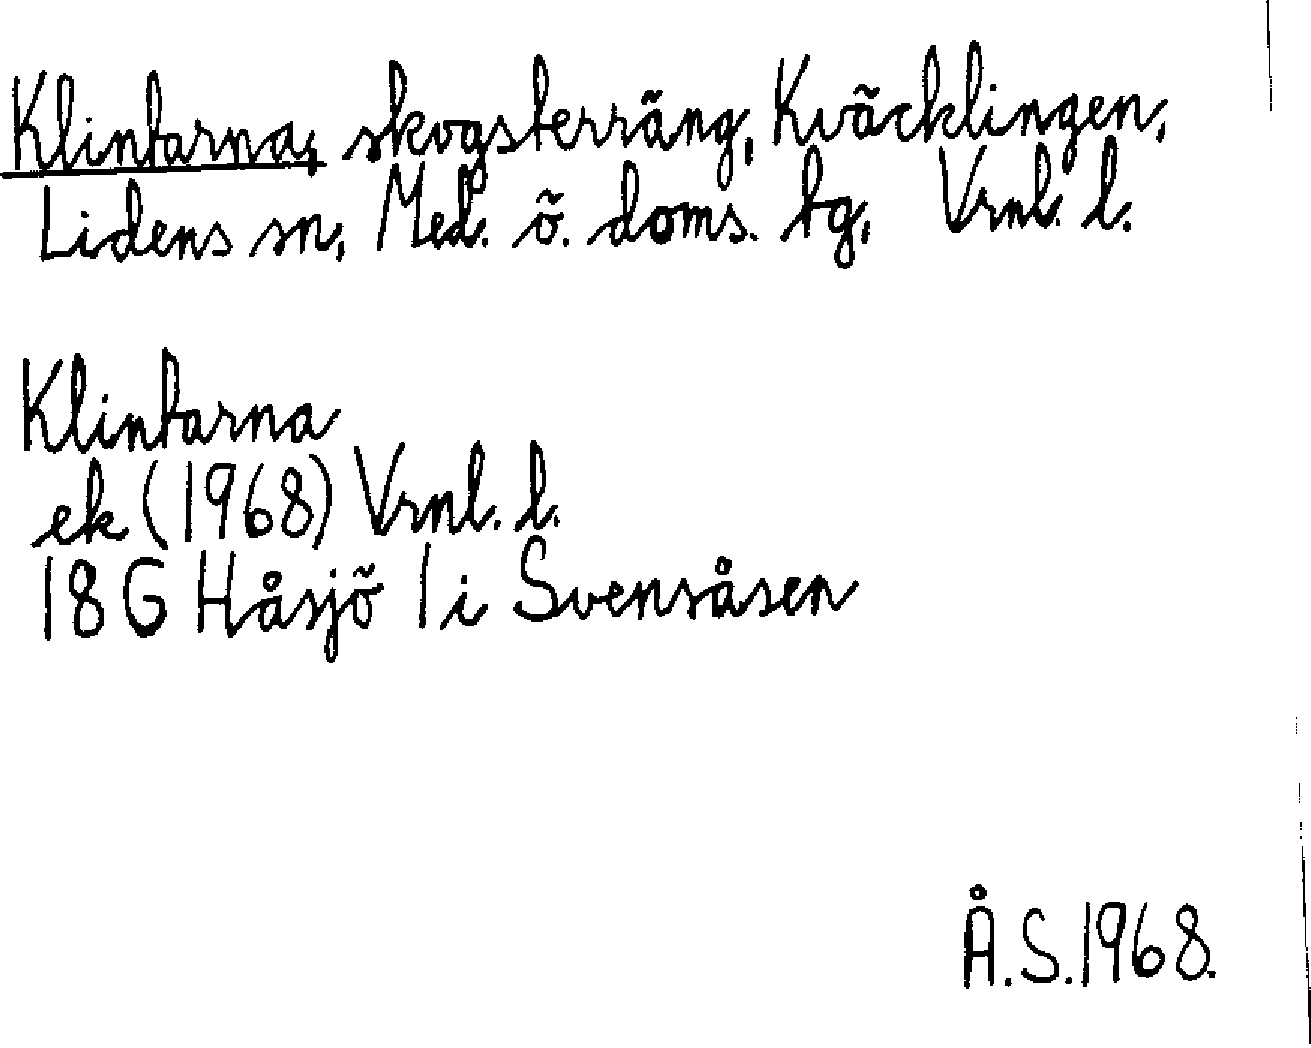 Klintarna, skogsterräng, Kväcklingen,
Lidens sn, Med. ö. doms. tg, Vrnl. l.
Klintarna
ek (1968) Vrnl. l.
18 G Håsjö 1 i Svensåsen
Å.S. 1968.